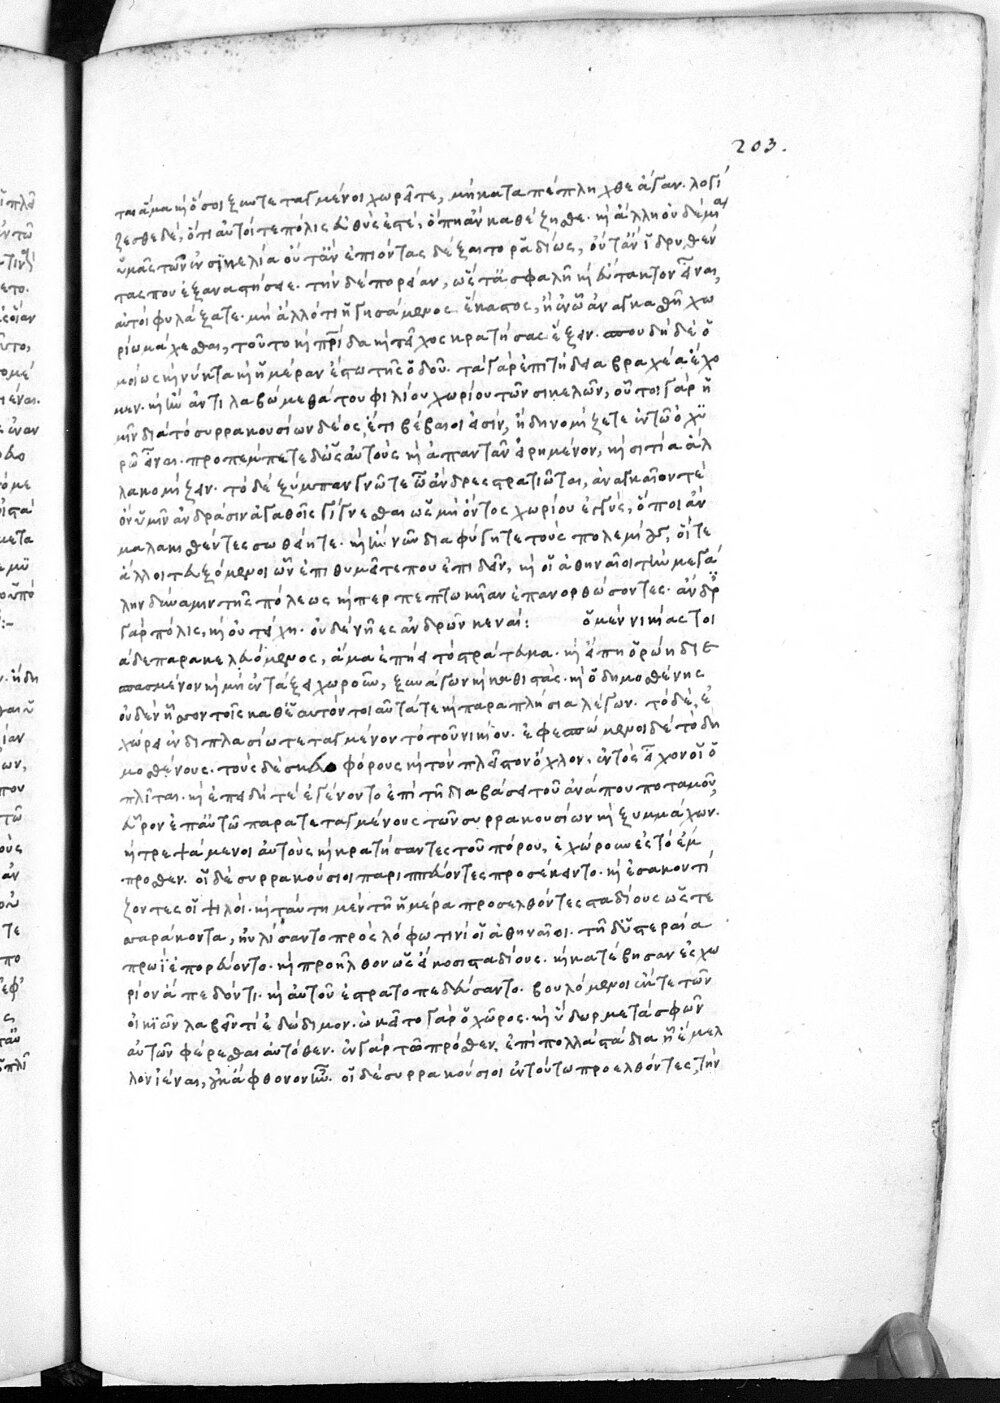 203.
ται ἅμα καὶ ὅσοι ξυντεταγμένοι χωρεῖτε, μὴ καταπέπληχθε ἄγαν. λογί
ζεσθε δέ, ὅτι αὐτοί τε πόλις εὐθύς ἐστέ, ὅπῃ ἂν καθέζησθε. καὶ ἄλλη οὐδεμία
ὑμᾶς τῶν ἐν σικελία οὔτ' ἂν ἐπιόντας δέξαιτο ῥαδίως, οὔτ' ἂν ἱδρυθέν
τας που ἐξαναστήσειε. τὴν δὲ πορείαν, ὥστ' ἀσφαλῆ καὶ εὔτακτον εἶναι,
αὐτοὶ φυλάξατε. μὴ ἄλλό τι ἡγησάμενος ἕκαστος, ἢ ἐν ᾧ ἂν ἀναγκασθῇ χω
ρίω μάχεσθαι, τοῦτο καὶ πρίδα καὶ τεῖχος κρατήσας ἕξειν. σπουδὴ δὲ ὁ
μοίως καὶ νύκτα καὶ ἡμέραν ἔσται τῆς ὁδοῦ. τὰ γὰρ ἐπιτήδεια βραχέα ἔχο
μεν. καὶ ἢν ἀντιλαβώμεθά του φιλίου χωρίου τῶν σικελῶν, οὗτοι γὰρ ἡ
μῖν διὰ τὸ συρρακουσίων δέος, ἔτι βέβαιοι εἰσίν, ἤδη νομίζετε ἐν τῷ ἐχυ
ρῷ εἶναι. προπέμπετε δ' ὡς αὐτοὺς καὶ ἀπαντᾶν εἰρημένον, καὶ σιτία ἀλ
λα κομίζειν. τὸ δὲ ξύμπαν γνῶτε ὦ ἄνδρες στρατιῶται, ἀναγκαῖον τέ
ὂν ὑμῖν ἀνδράσιν ἀγαθοῖς γίγνεσθαι ὡς μὴ ὄντος χωρίου ἐγγύς, ὅποι ἂν
μαλακισθέντες σωθείητε. καὶ ἢν νῦν διαφύγητε τοὺς πολεμίους, οἵ τε
ἄλλοι τευξόμενοι ὧν ἐπιθυμεῖτέ που ἐπιδεῖν, καὶ οἱ ἀθηναῖοι τὴν μεγά
λην δύναμιν τῆς πόλεως καίπερ πεπτωκυῖαν ἐπανορθώσοντες. ἄνδρες
γὰρ πόλις, καὶ οὐ τείχη. οὐδὲ νῆες ἀνδρῶν κεναί: ὁ μὲν νικίας τοι
άδε παρακελευόμενος, ἅμα ἐπῄει τὸ στράτευμα. καὶ εἴ πῃ ὁρῴη διε
σπασμένον καὶ μὴ ἐν τάξει χωροῦν, ξυνάγων καὶ καθιστάς. καὶ ὁ δημοσθένης
οὐδὲν ἧσσον τοῖς καθ' ἑαυτὸν τοιαῦτά τε καὶ παραπλήσια λέγων. τὸ δέ, ἐ
χώρει ἐν διπλασίω τεταγμένον τὸ τοῦ νικίου. ἐφεσπώμενοι δὲ τὸ δη
μοσθένους. τοὺς δὲ σκευοφόρους καὶ τὸν πλεῖστον ὄχλον, ἐντὸς εἶχον οἱ ὁ
πλῖται. καὶ ἐπειδή τε ἐγένοντο ἐπὶ τῇ διαβάσει τοῦ ἀνάπου ποταμοῦ,
εὗρον ἐπ' αὐτῷ παρατεταγμένους τῶν συρρακουσίων καὶ ξυμμάχων.
καὶ τρεψάμενοι αὐτοὺς καὶ κρατήσαντες τοῦ πόρου, ἐχώρουν ἐς τὸ ἔμ
προσθεν. οἱ δὲ συρρακούσιοι παριππεύοντες προσέκειντο. καὶ ἐσακοντί
ζοντες οἱ ψιλοί. καὶ ταύτῃ μὲν τῇ ἡμέρα προσελθόντες σταδίους ὥστε
σαράκοντα, ηὐλίσαντο πρὸς λόφω τινὶ οἱ ἀθηναῖοι. τῇ δ' ὑστεραία
πρωῒ ἐπορεύοντο. καὶ προῆλθον ὡς εἴκοσι σταδίους. καὶ κατέβησαν ἐς χω
ρίον ἄπεδόν τι. καὶ αὐτοῦ ἐστρατοπεδεύσαντο. βουλόμενοι ἔκ τε τῶν
οἰκιῶν λαβεῖν τι ἐδώδιμον. ὠκεῖτο γὰρ ὁ χῶρος. καὶ ὕδωρ μετὰ σφῶν
αὐτῶν φέρεσθαι αὐτόθεν. ἐν γὰρ τῷ πρόσθεν ἐπὶ πολλὰ στάδια ᾗ ἔμελ
λον ἰέναι, οὐκ ἄφθονον ἦν. οἱ δὲ συρρακούσιοι ἐν τούτω προελθόντες, τὴν